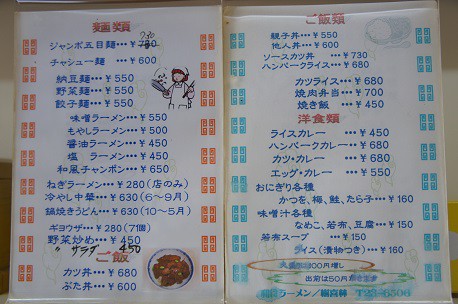 麺類
ジャンボ五目麺・・・¥730
チャシュー麺・・・¥600
納豆麺・・・¥550
野菜麺・・・¥550
餃子麺・・・¥550
味噌ラーメン・・・¥550
もやしラーメン・・・¥500
醤油ラーメン・・・¥450
塩 ラーメン・・・¥450
和風チャンポン・・・¥650
ねぎラーメン・・・¥280(店のみ)
冷やし中華・・・¥630(6～9月)
鍋焼きうどん・・・¥630(10～5月)
ギョウザ・・・¥280(7個)
野菜炒め・・・¥450
〃 サラダ 450
ご飯
カツ丼・・・¥680
ぶた丼・・・¥600
ご飯類
親子丼・・・¥550
他人丼・・・¥600
ソースカツ丼・・・¥730
ハンバークライス・・・¥680
カツライス・・・¥680
焼肉弁当・・・¥700
焼き飯・・・¥450
洋食類
ライスカレー・・・¥450
ハンバークカレー・・・¥680
カツ・カレー・・・¥680
エッグ・カレー・・・¥550
おにぎり各種
かつを、梅、鮭、たら子・・・¥160
味噌汁各種
なめこ、若布、豆腐・・・¥150
若布スープ・・・¥150
ライス(漬物つき)・・・¥160
大盛は100円増し
出前は50円
ラーメン/ T23-6506